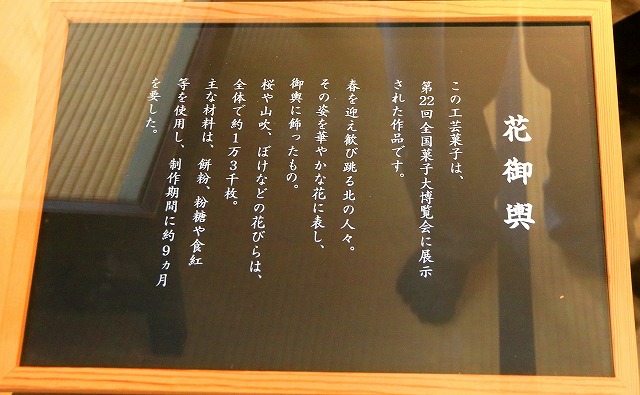 花御輿
この工芸菓子は、
第22回全国菓子大博覧会に展示
された作品です。
春を迎え歓び跳る北の人々。
その姿を華やかな花に表し、
御輿に飾ったもの。
桜や山吹、ぼけなどの花びらは、
全体で約1万3千枚。
主な材料は、餅粉、粉糖や食紅
等を使用し、制作期間に約9ヵ月
を要した。